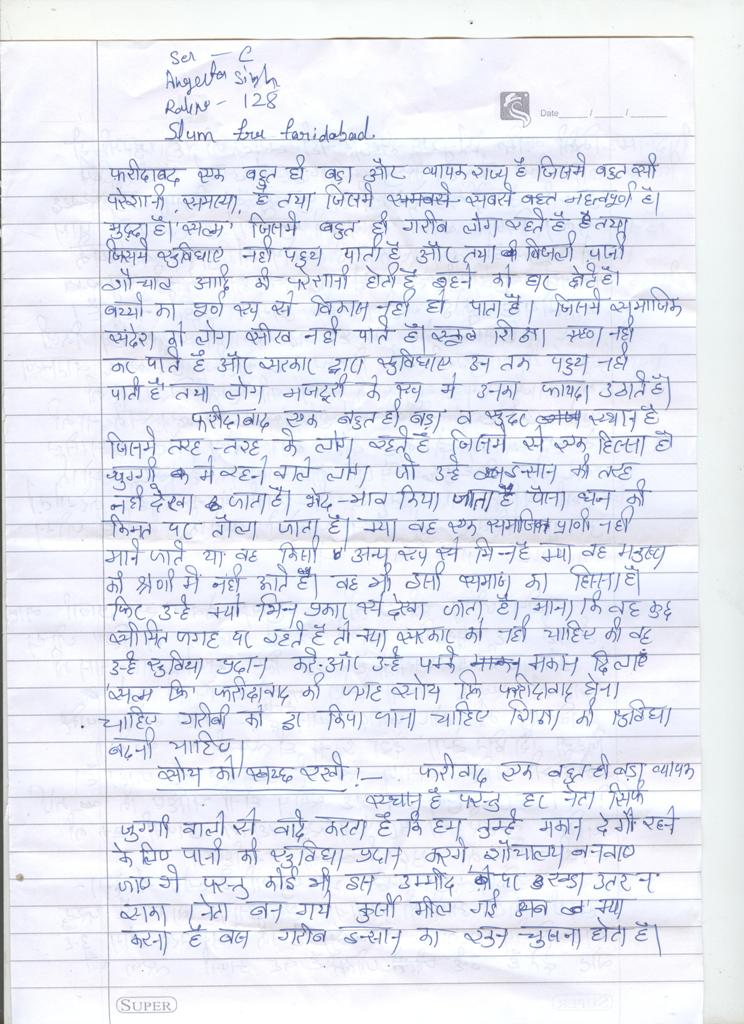 Sec - C
Angeeta Singh
Rollno - 128
Slum free faridabad.
Date
फरीदाबद एक बहुत ही बड़ा और व्यापक राज्य है जिसमे बहुत सी
परेशानी, समस्या है तथा जिसमे सबसे बहुत महत्वपूर्ण है।
मुद्दा है 'सल्म' जिसमे बहुत ही गरीब लोग रहते है तथा
जिसमे सुविधाएं नही पहुच पाती है और तथा बिजली पानी
शौचाय आदि की परेशानी होती है रहने को घर होते है।
बच्चो का पूर्ण रूप से विकास नही हो पाता है। जिसमे समाजिक
संदेश वो लोग सीख नही पाते है। स्कूल शिक्षा ग्रहण नही
कर पाते है और सरकार द्वारा सुविधाए उन तक पहुच नही
पाती है तथा लोग मजदूरी के रूप मे उनका फायदा उठाते है।
फरीदाबाद एक बहुत ही बड़ा व सुंदर स्थान है
जिसमे तरह-तरह के लोग रहते है जिसमे से एक हिस्सा है
झुग्गी मे रहने वाले लोग जो उन्हे इन्सान की तरह
नही देखा जाता है। भेद-भाव किया जाता है पैसा धन की
किमत पर तौला जाता है। क्या वह एक समाजिक प्राणी नही
माने जाते या वह किसी अन्य रूप से भिन्न है क्या वह मनुष्य
की श्रेणी मे नही आते है। वह भी इसी समाज का हिस्सा है।
फिर उन्हे क्यो भिन्न प्रकार से देखा जाता है। माना कि वह कुछ
सीमित जगह पर रहते है तो क्या सरकार को नही चाहिए की वह
उन्हे सुविधा प्रदान करे और उन्हे पक्के मकान दिलाए
'सल्म फ्रि फरीदाबाद की जगह सोच फ्रि फरीदाबाद होना
चाहिए गरीबी को दूर किया जाना चाहिए शिक्षा की सुविधा
बढनी चाहिए
सोच को स्वच्छ रखो! - फरीबाद एक बहुत ही बड़ा व्यापक
स्थान है परन्तु हर नेता सिर्फ
झुग्गी वालो से वादे करता है कि हम तुम्हे मकान देगे रहने
के लिए पानी की सुविधा प्रदान करेगे, शौचालय बनवाए
जाए गे परन्तु कोई भी इस उम्मीद पर खडा उतर न
सका नेता बन गये कुर्सी मील गई अब क्या
करना है बस गरीब इन्सान का खुन चुसना होता है।
SUPER